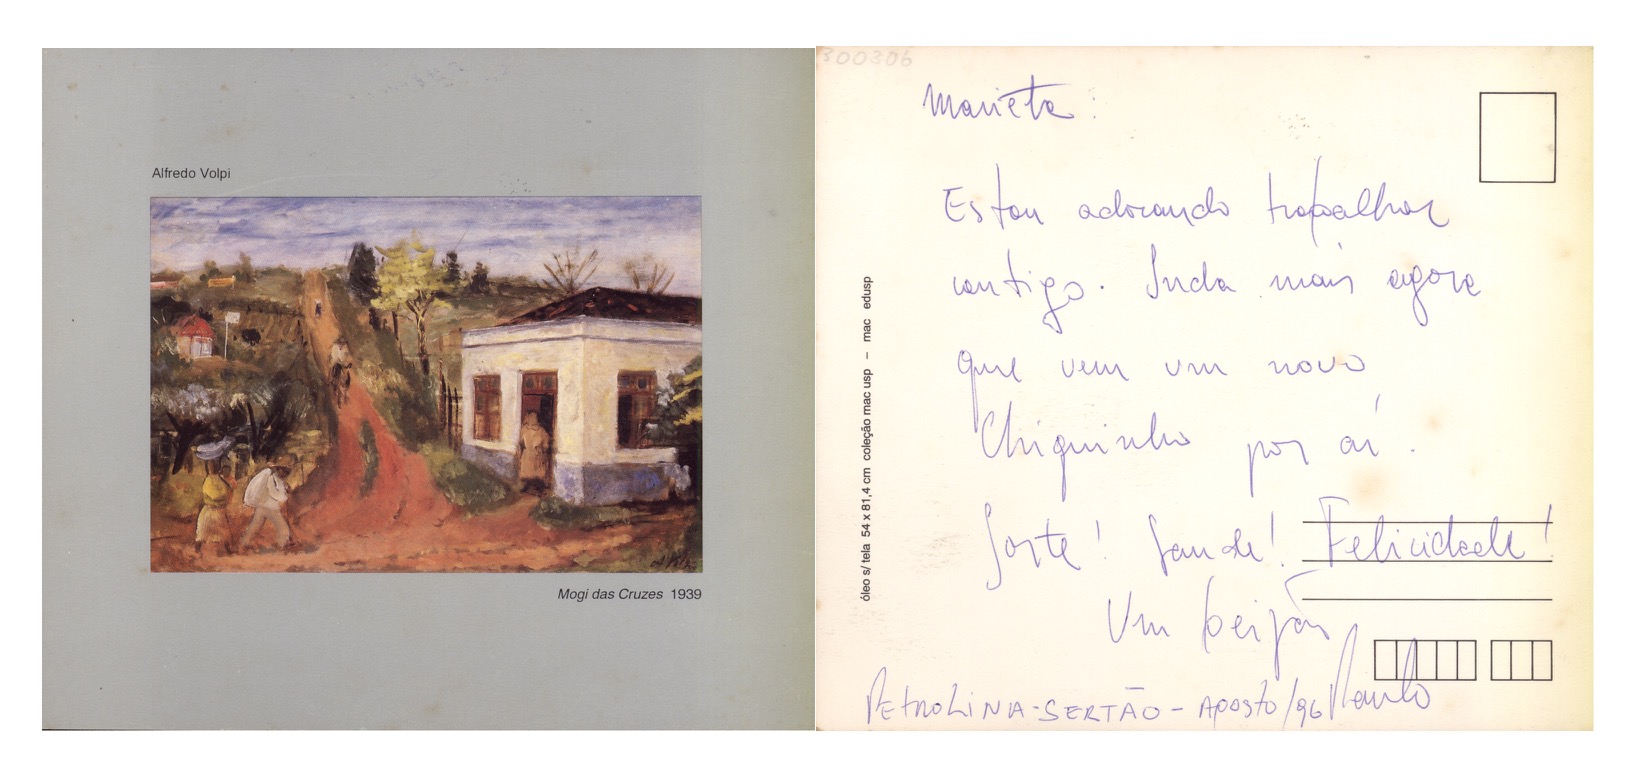 Alfredo Volpi
Mogi das Cruzes 1939
300306
Marieta:
Estou adorando trabalhar
contigo. Inda mais agora
que vem um novo
Chiquinho por aí.
Sorte! Saude! Felicidade!
Um beijão
Paulo
PETROLINA-SERTÃO - AGOSTO/96
óleo s/ tela 54 x 81,4 cm coleção mac usp – mac edusp